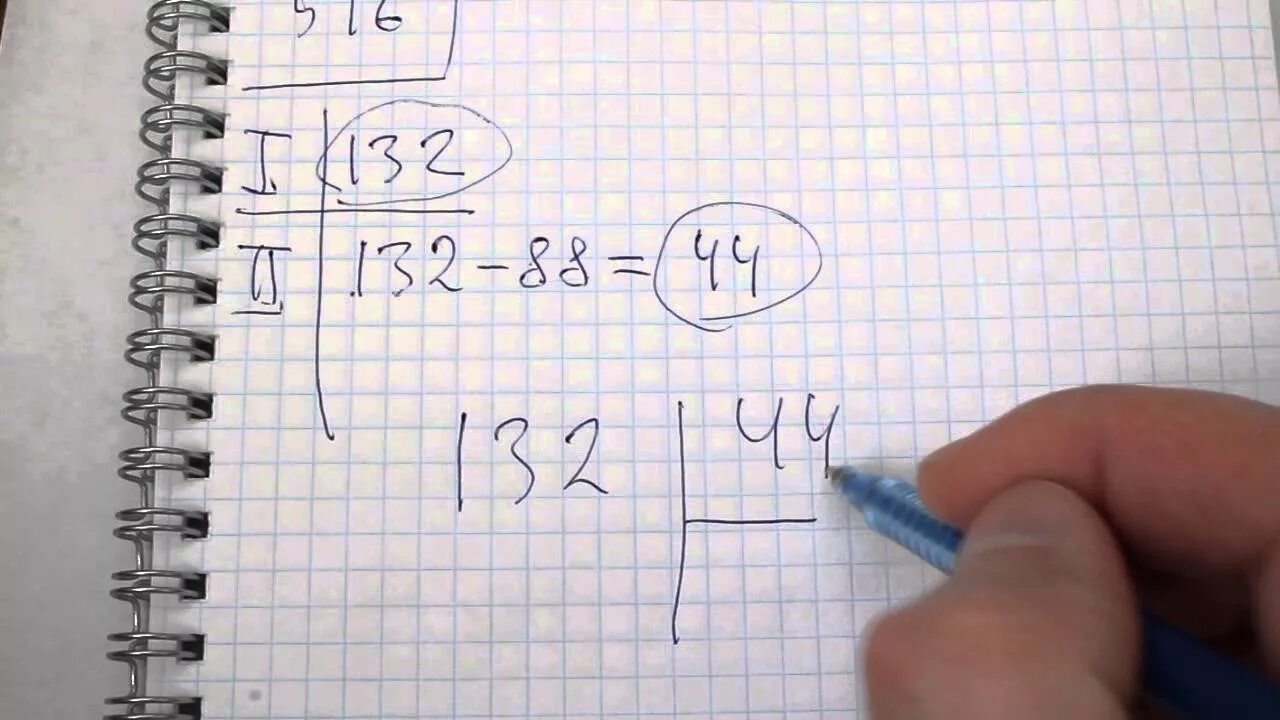 516
I 132
II 132-88=44
132 44